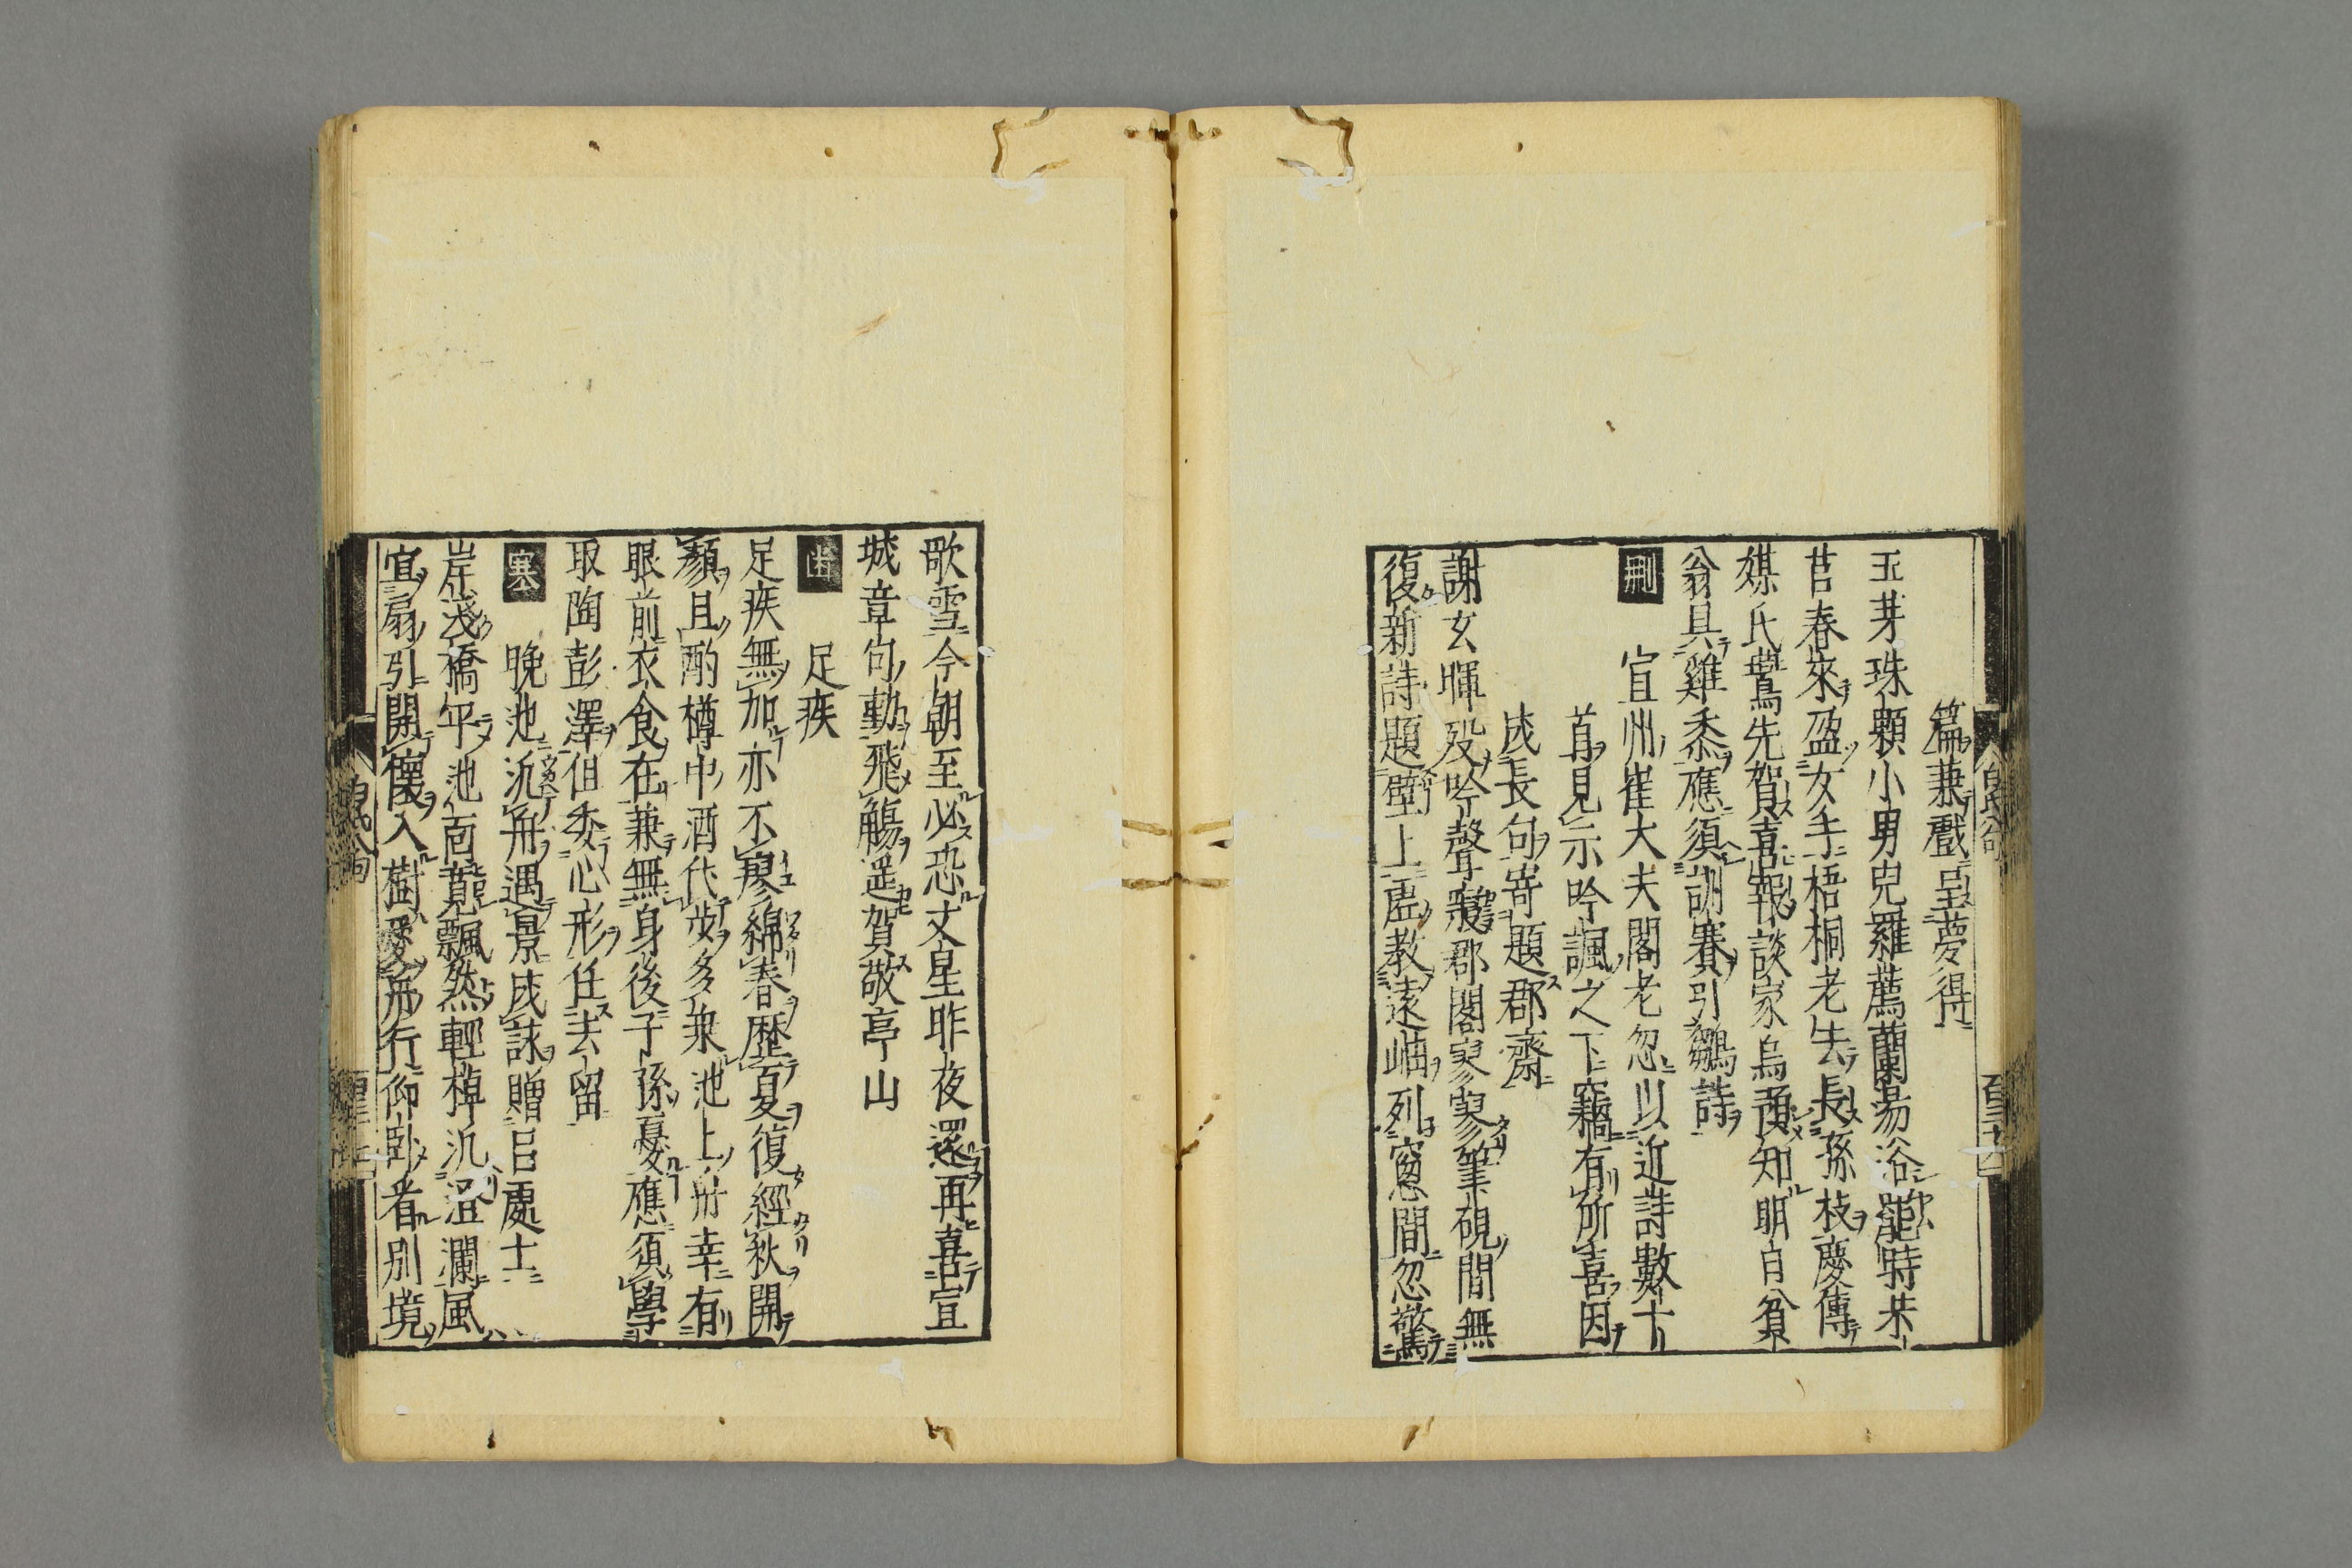 篇兼戲呈夢得
玉芽珠顆小男兒羅薦蘭湯浴罷時芣
苢春來盈女手梧桐老去長孫枝慶傳
媒氏鷰先賀喜報談家烏預知明日貧
翁具雞黍應須詶賽引雛詩
刪
宣州崔大夫閣老忽以近詩數十
首見示吟諷之下竊有所喜因
成長句寄題郡齋
謝玄暉歿吟聲寢郡閣寥寥筆硯閒無
復新詩題壁上虛教遠岫列窓間忽驚
歌雪今朝至必恐文星昨夜還再喜宣
城章句動飛觴遥賀敬亭山
足疾
足疾無加亦不瘳綿春歷夏復經秋開
顏且酌樽中酒代步多乘池上舟幸有
眼前衣食在兼無身後子孫憂應須學
取陶彭澤但委心形任去留
寒
晚池汎舟遇景成詠贈呂處士
岸淺橋平池面寛飄然輕棹汎澄瀾風
宜扇引開懷入樹愛舟行仰臥看別境